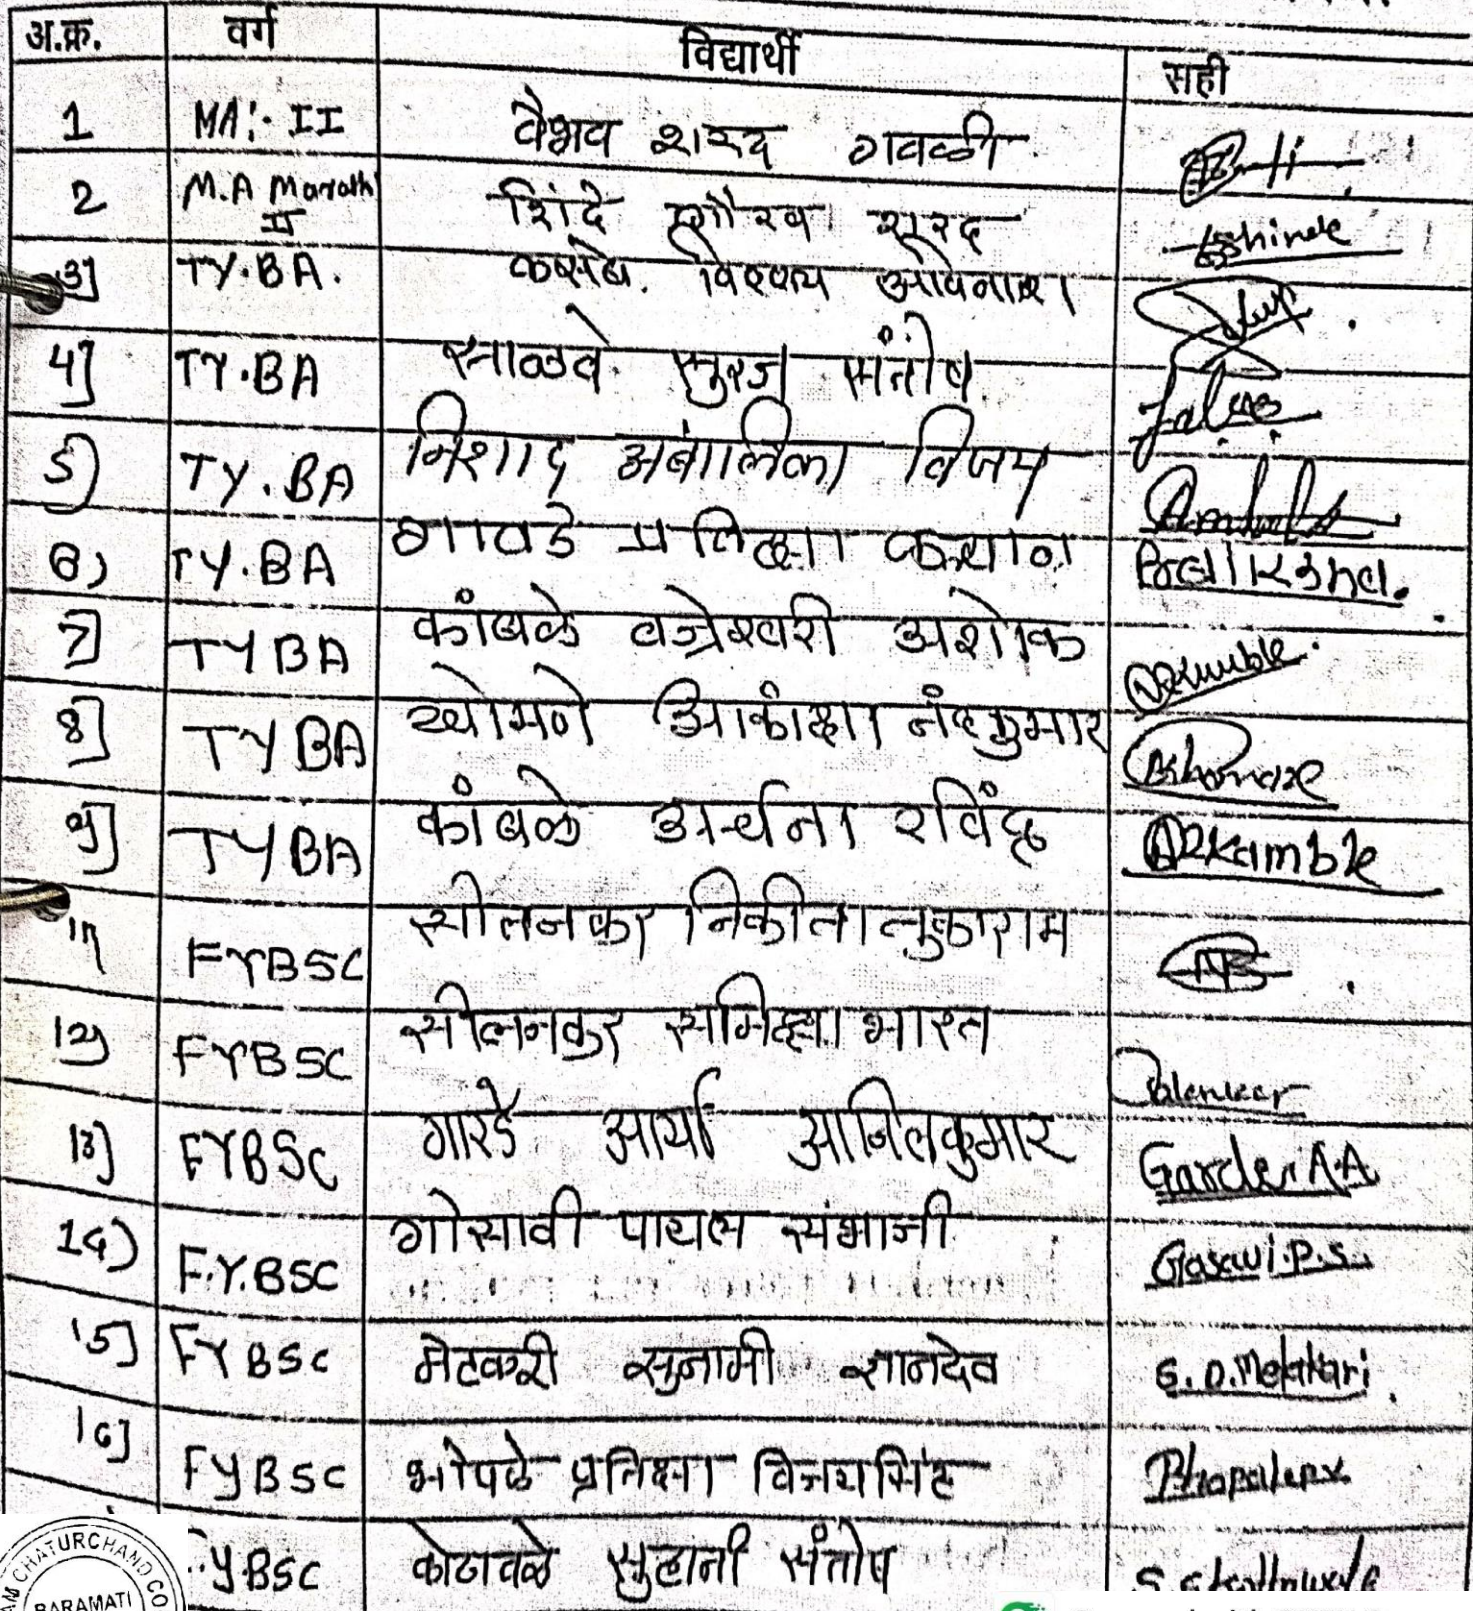 अ.क्र. वर्ग विद्यार्थी सही
1 MA:- II वैभव शरद गवळी
2 M.A Marathi II शिंदे गौरव शरद Shinde
3] TY.BA. कसबे.
4] TY.BA साळवे सुरज संतोष
5) TY.BA निशाद अंबालिका विजय
6) TY.BA गावडे प्रतिक्षा कल्याण
7] TYBA कांबळे वज्रेश्वरी अशोक
8] TYBA खोमणे आकांक्षा नंदकुमार
9] TYBA कांबळे अर्चना रविंद्र ARKamble
11) FYBSC सोलनकर निकीता तुकाराम
12) FYBSC सोलनकर समिक्षा भारत
13] FYBSC गारडे आर्या अनिलकुमार Garde A.A
14) F.Y.BSC गोसावी पायल संभाजी Gosavi.P.S.
15] FYBSC मेटकरी सुनामी ज्ञानदेव S.D.Metkari
16] FYBSC भोपळे प्रतिक्षा विजयसिंह
.Y.BSC कोठावळे सुहानी संतोष
CHATURCHAND CO
BARAMATI